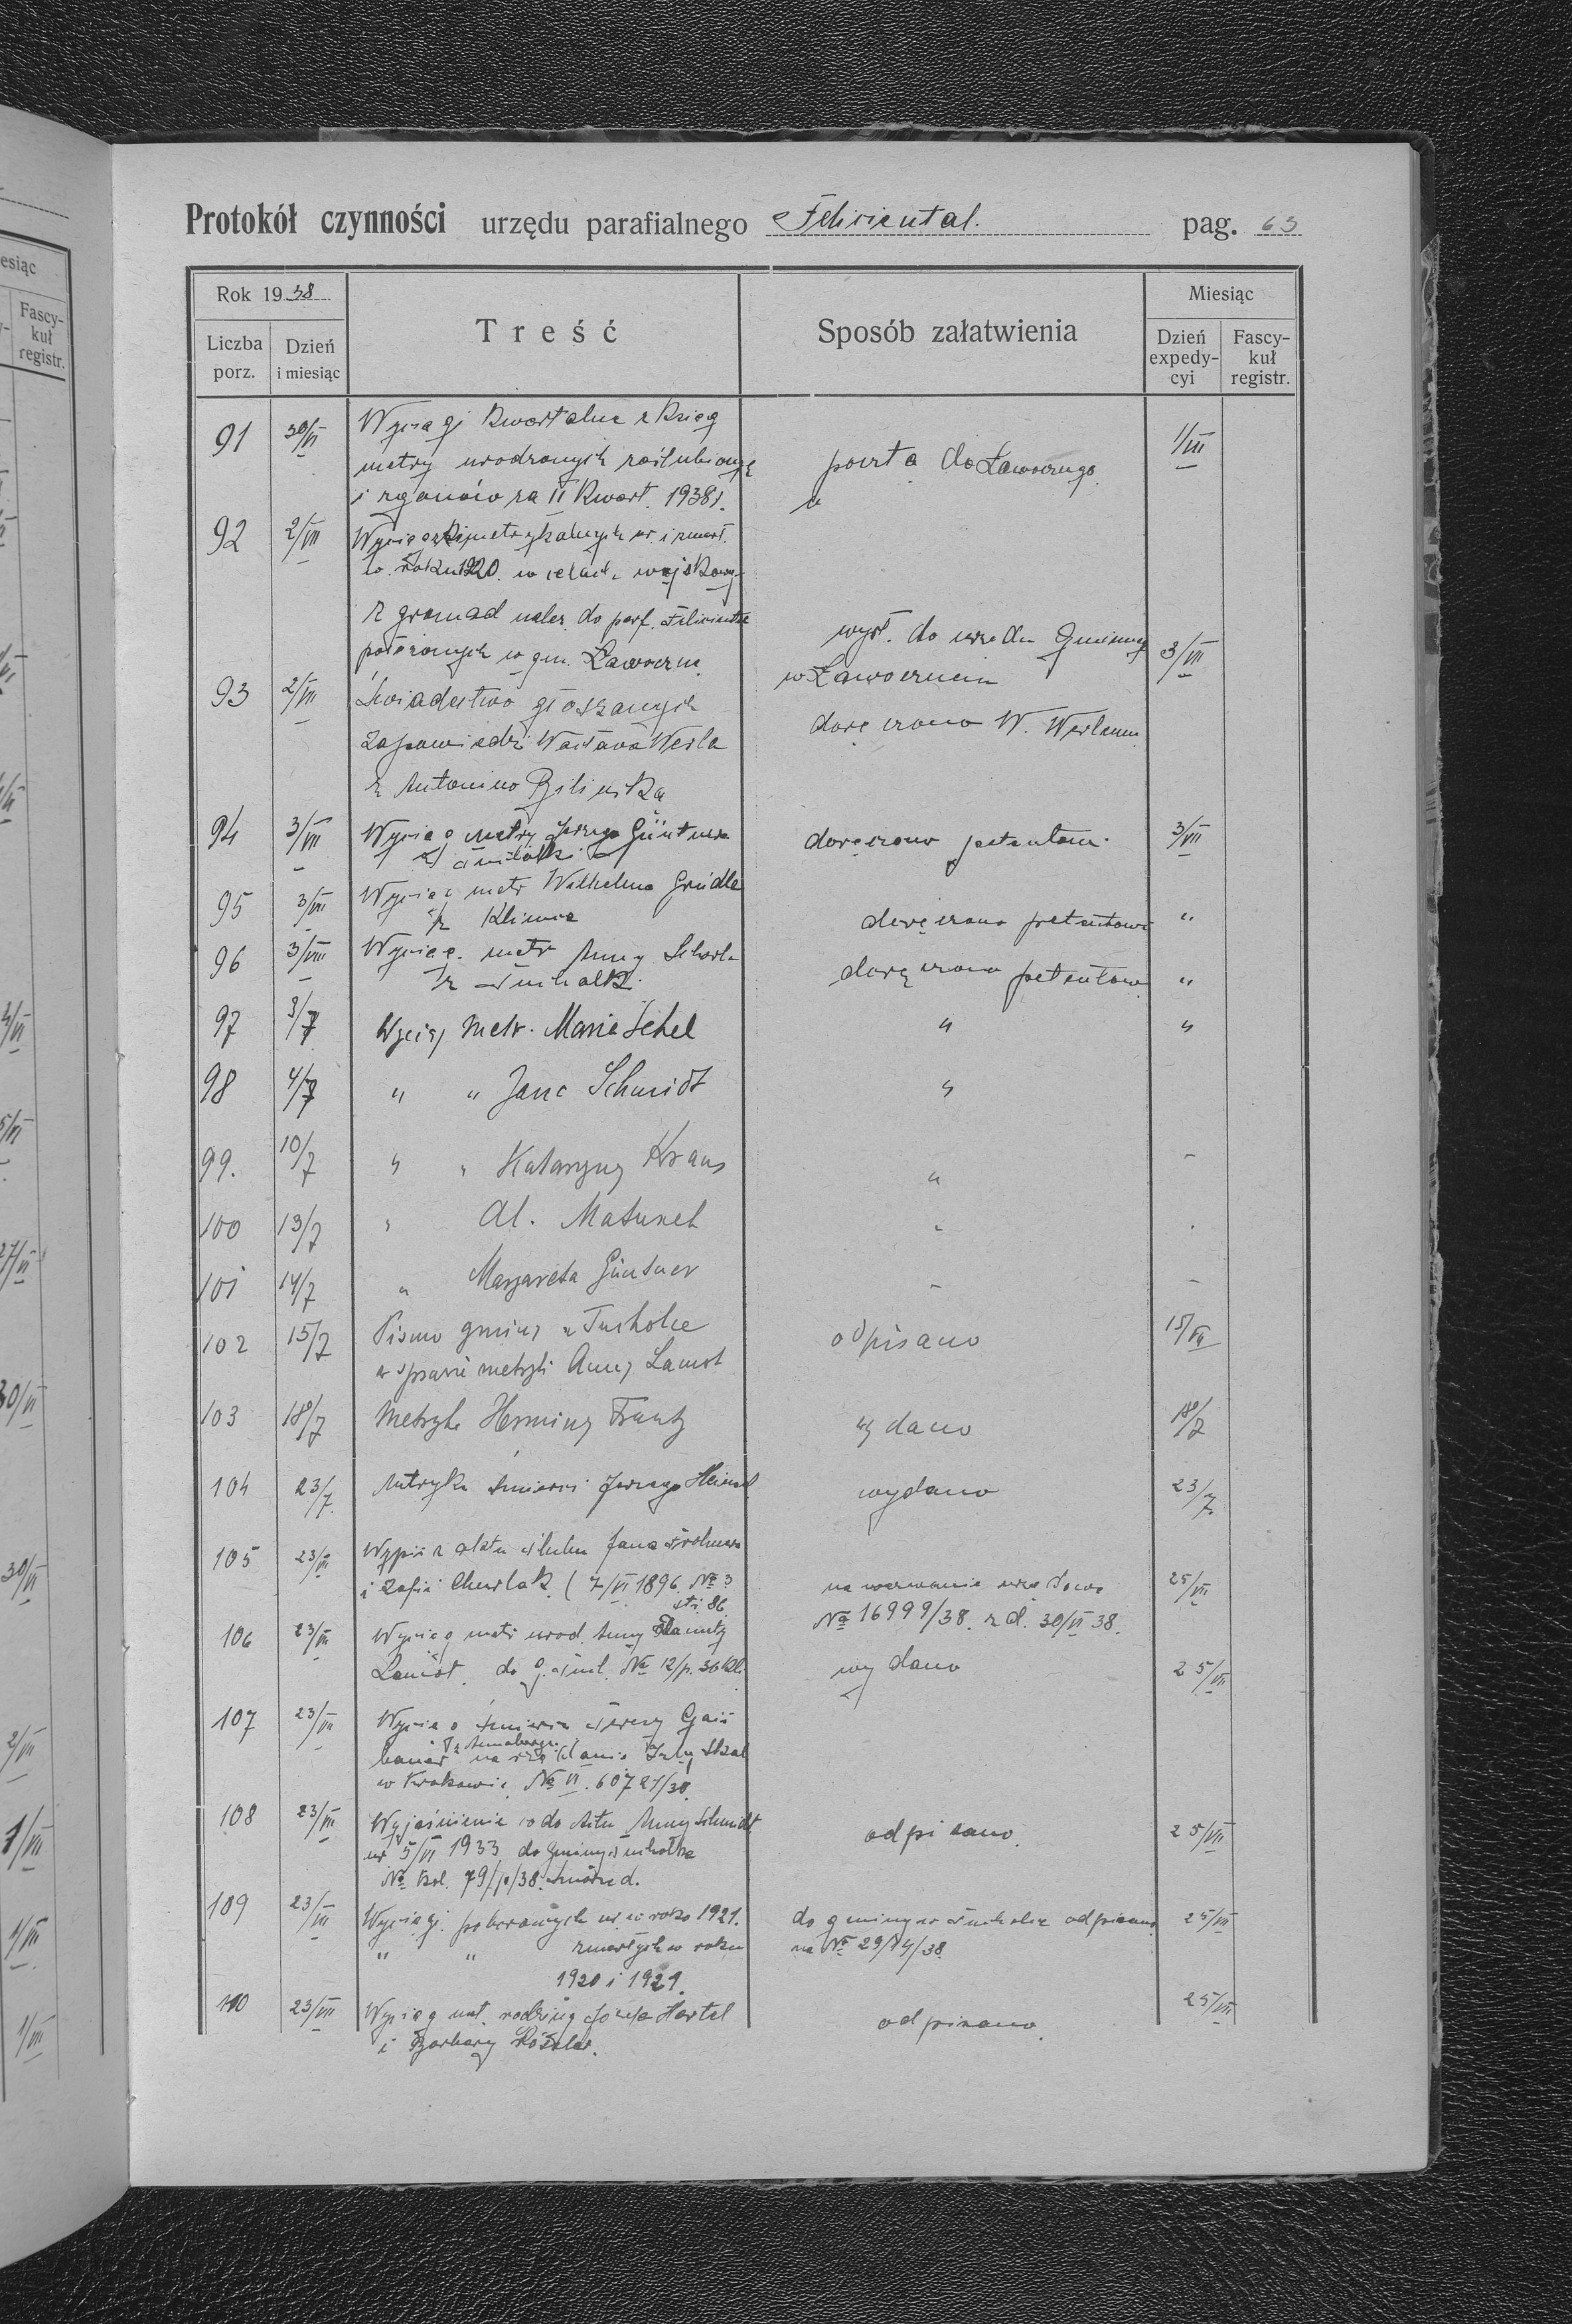 Protokół czynności urzędu parafialnego Feliciental. pag. 63
Rok 1938
Miesiąc
Liczba porz.
Dzień i miesiąc
Treść
Sposób załatwienia
Dzień expedycyi
Fascykuł registr.
91 30/VI Wyciągi kwartalne z ksiąg
metry urodzonych zaślubionych poczta do Ławocznego 1/VII
i zgonów za II kwart. 1938 r.
92 2/VII Wyciągi metrykalnych ur. i zmarł.
w roku 1920. w celach wojskowy
z gromad należ. do parf. Felicienta wysł. do urzędu Gminneg 3/VII
położonych w gm. Ławoczne w Ławocznem
93 2/VII Świadectwo głoszonych doręczono W. Werlemu
zapowiedzi Wacława Werla
z Antonino Bilinską
94 3/VII Wyciąg metry Jerzego Güntnera doręczono petentowi 3/VII
z Tucholki
95 3/VII Wyciąg metr Wilhelma Gründla doręczono petentowi "
z Klimca
96 3/VII Wyciąg. metr Anny doręczono petentowi "
z Tucholki
97 3/7 Wyciąg Metr. Maria " "
98 4/7 " " Jana Schmidt "
99. 10/7 " " Katarzyny Kraus " -
100 13/7 " Al.
101 14/7 " Margareta Güntner - -
102 15/7 Pismo gminy w Tucholce odpisano 15/VII
w sprawie metryki Anny Lamot
103 18/7 Metryka Herminy Frantz wydano 18/7
104 23/7. Metryka śmierci Jerzego wydano 23/7.
105 23/VII Wypis z aktu ślubu Jana
i Zofii Churlak (7/VI 1896. No 3 na wezwanie urzędowe 25/VII
str. 86 No 16999/38. z d. 30/VI 38.
106 23/VII Wyciąg metr urod. Anny wydano 25/VII
Lamot. do G. Tuchl. No 12/p. 36
107 23/VII Wyciąg śmierci Teresy
na żądanie Izby Skar
w Krakowie, No VI. 60721/38.
108 23/VII Wyjaśnienie co do aktu Anny Schmidt odpisano. 25/VII
ur 5/VI 1933 do Gminy Tucholka
No kol. 79/p/38.
109 23/VII Wyciągi poborowych ur. w roku 1921. do gminy w Tucholce odpisano 25/VII
" " zmarłych w roku na No 29/14/38.
1920 i 1921.
110 23/VII Wyciąg met. rodziny Józefa Hartel odpisano. 25/VII
i Barbary Rössler.